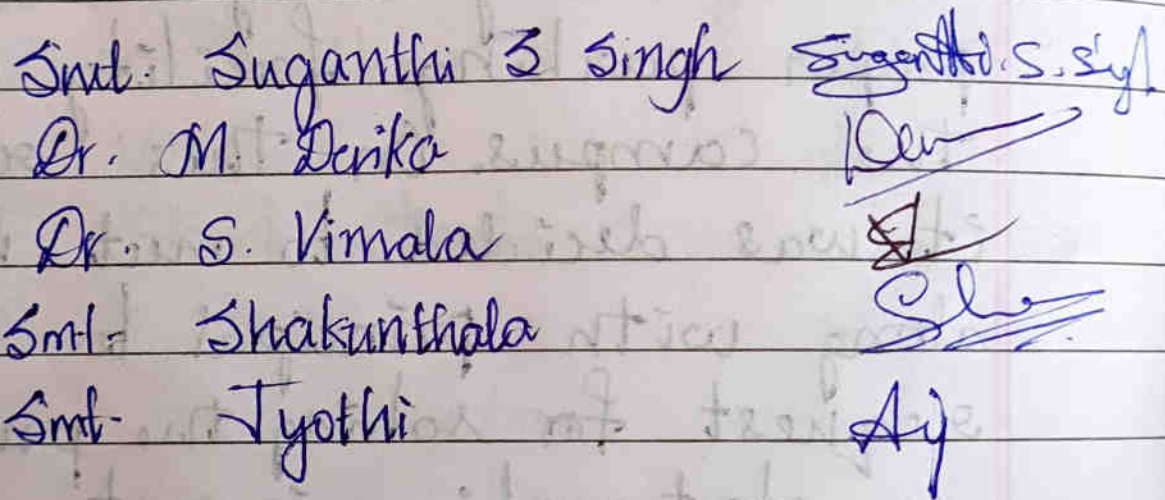 Smt. Suganthi S Singh Suganthi.S.Syl
Dr. M. Devika Dev
Dr. S. Vimala
Smt. Shakunthala Sha
Smt. Jyothi